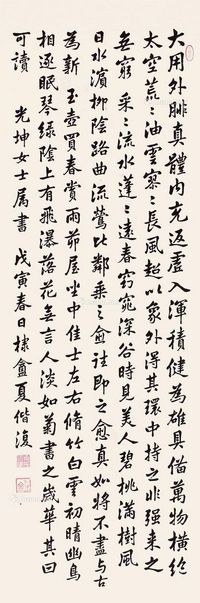 大用外腓真體內充返虛入渾積健為雄具備萬物橫絕
太空荒〻油雲寥〻長風超以象外得其環中持之非强來之
無窮采〻流水蓬〻遠春窈窕深谷時見美人碧桃滿樹風
日水濱柳陰路曲流鶯比鄰乘之愈往即之愈真如將不盡與古
為新 玉壺買春賞雨茆屋坐中佳士左右脩竹白雲初晴幽鳥
相逐眠琴綠陰上有飛瀑落花無言人淡如菊書之歲華其曰
可讀 光坤女士属書 戊寅春日棣盦夏偕復